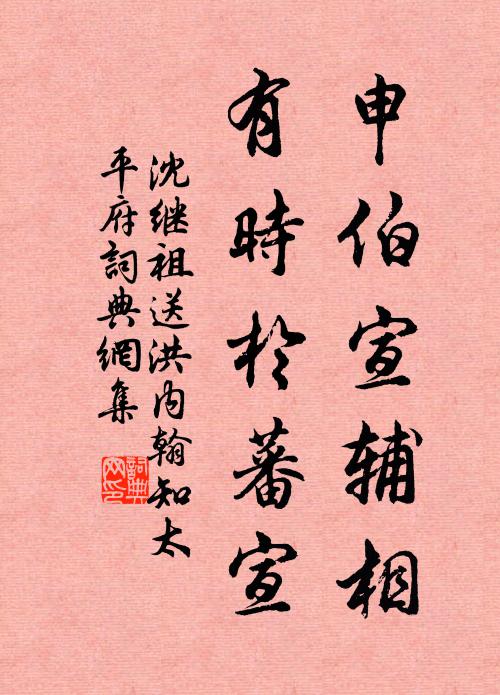 申伯宣辅相
有時於蕃宣
沈继祖送洪内翰知太
平府詞典網集
詞典网印